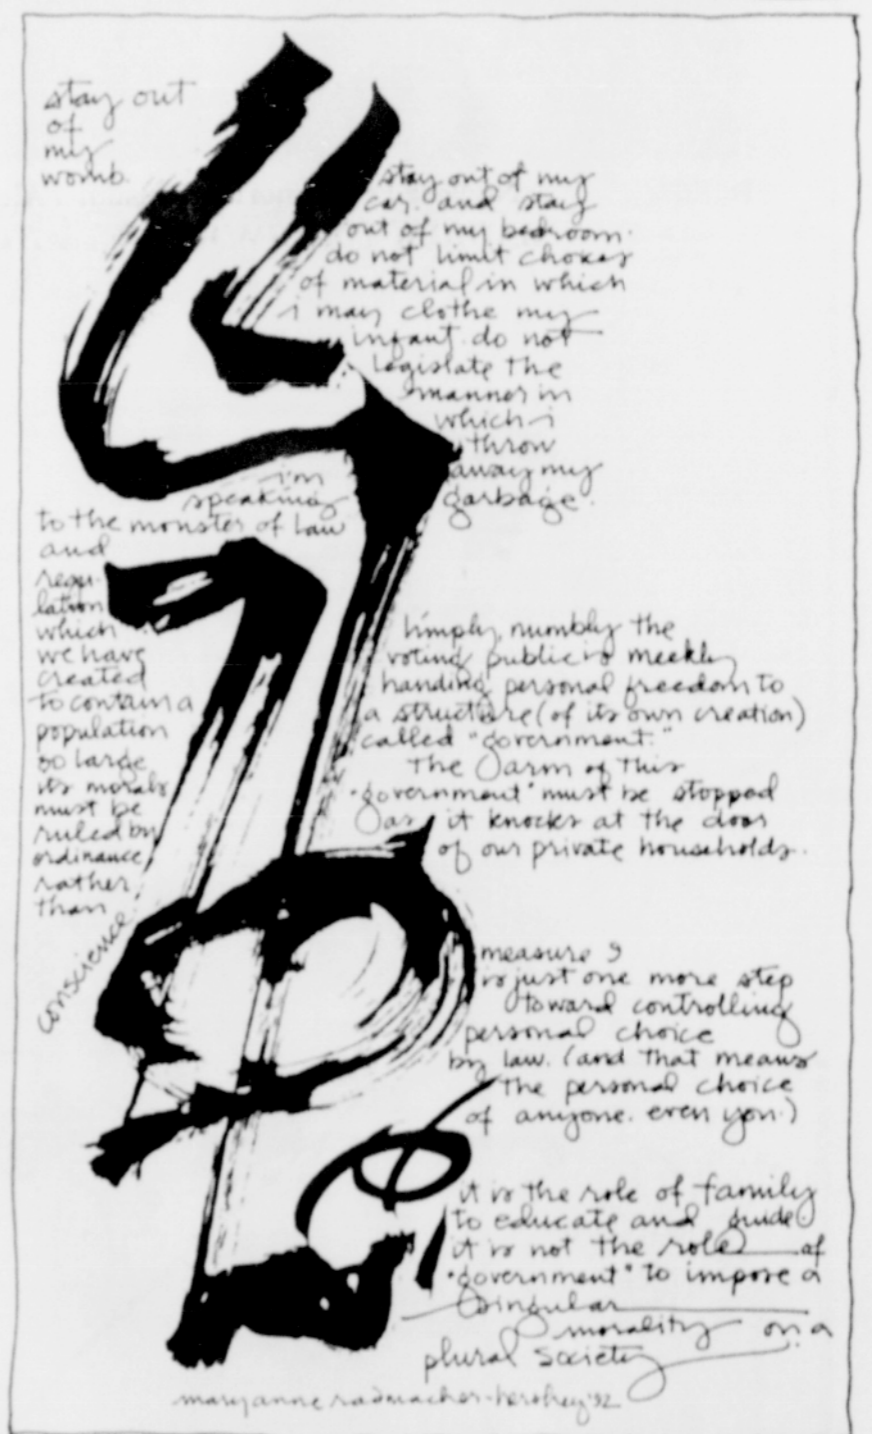 stay out
of
my
womb.
stay out of my
car. and stay
out of my bedroom.
do not limit choices
of material in which
i may clothe my
infant. do not
legislate the
manner in
which i
throw
away my
garbage.
i'm
speaking
to the monster of law
and
regu-
lation
which
we have
created
to contain a
population
so large
its morals
must be
ruled by
ordinance
rather
than
conscience
limply, numbly the
voting public is meekly
handing personal freedom to
a structure (of its own creation)
called "government."
The arm of this
"government" must be stopped
as it knocks at the door
of our private households.
measure 9
is just one more step
toward controlling
personal choice
by law. (and that means
the personal choice
of anyone. even you.)
it is the role of family
to educate and guide.
it is not the role of
"government" to impose a
singular
morality on a
plural society
mary anne radmacher-hershey '92